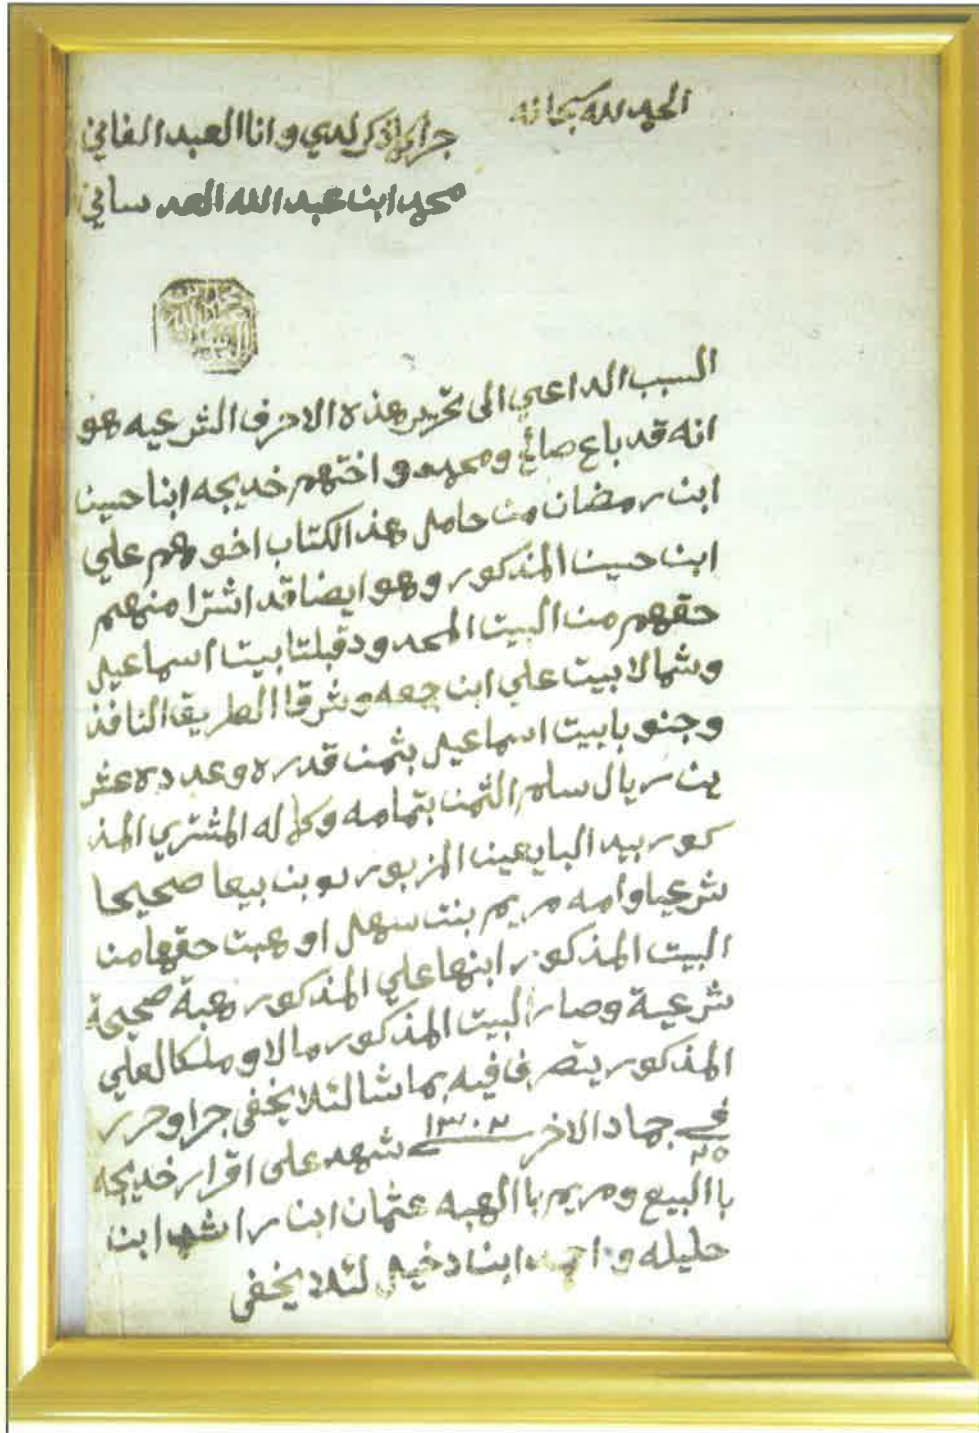 الحمد لله سبحانه
جرا ما ذكر لدي وانا العبد الفاني
محمد ابن عبد الله العدساني
السبب الداعي الى تحرير هذه الاحرف الشرعيه هو
انه قد باع صالح ومحمد واختهم خديجه ابنا حسين
ابن رمضان من حامل هذ الكتاب اخوهم علي
ابن حسين المذكور وهو ايضا قد اشترا منهم
حقهم من البيت المحدود قبلتا بيت اسماعيل
وشمالا بيت علي ابن جمعه وشرقا الطريق النافذ
وجنوبا بيت اسماعيل بثمن قدره وعدده عشر
ين ريال سلم الثمن بتمامه وكماله المشتري المذ
كور بيد البايعين المزبورين بيعا صحيحا
شرعيا وامه مريم بنت سهل اوهبت حقها من
البيت المذكور ابنها علي المذكور هبة صحيحة
شرعية وصار البيت المذكور مالا وملكا لعلي
المذكور يتصرف فيه بما شا لئلا يخفى جرا وحرر
في ٢٥ جماد الاخر ١٣٠٢ شهد على اقرار خديجه
باالبيع ومريم باالهبه عثمان ابن راشد ابن
حليله و احمد ابن دخيل لئلا يخفى